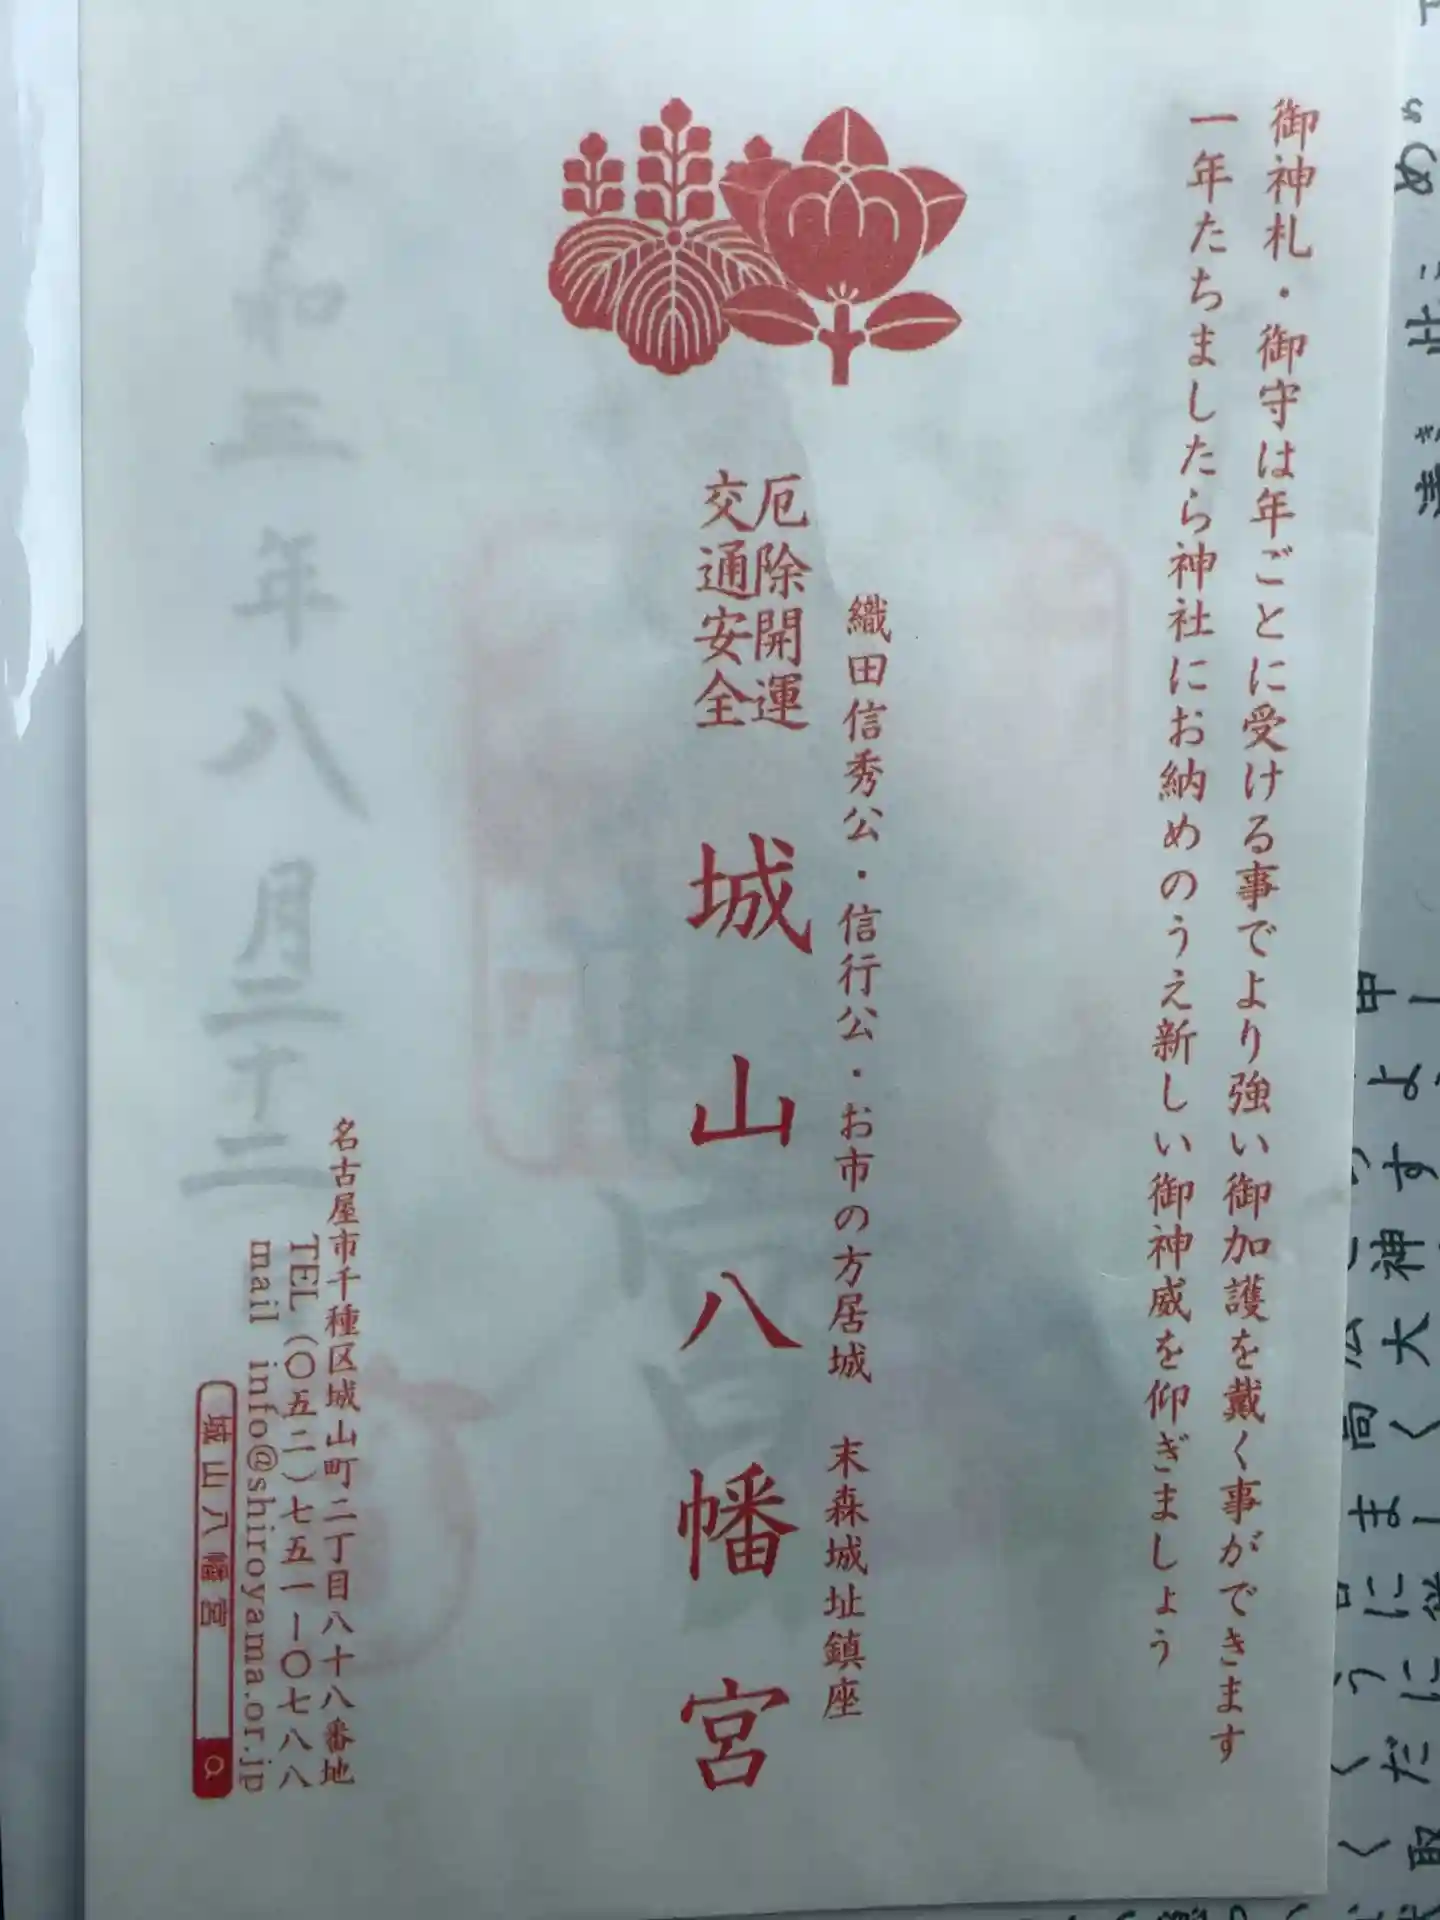 御神札・御守は年ごとに受ける事でより強い御加護を戴く事ができます
一年たちましたら神社にお納めのうえ新しい御神威を仰ぎましょう
織田信秀公・信行公・お市の方居城　末森城址鎮座
厄除開運
交通安全
城山八幡宮
名古屋市千種区城山町二丁目八十八番地
TEL（〇五二）七五一ー〇七八八
mail info@shiroyama.or.jp
城山八幡宮
令和三年八月二十二